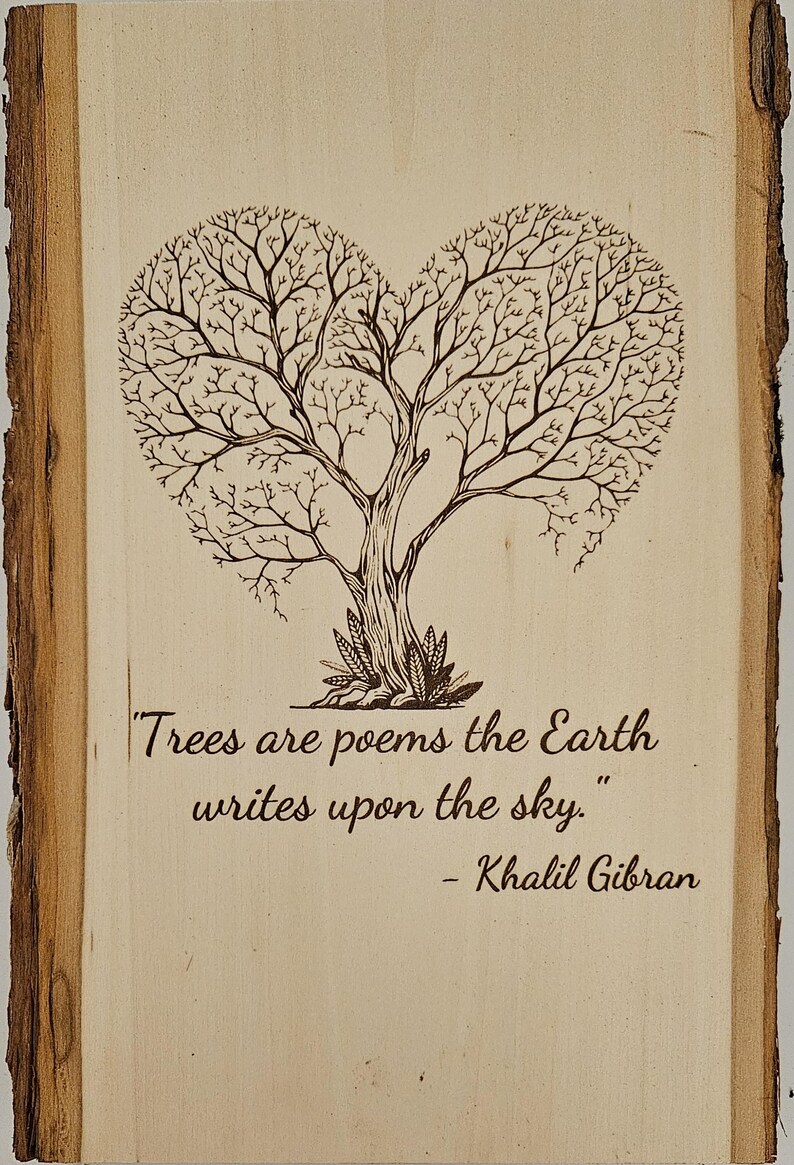 "Trees are poems the Earth
writes upon the sky."
- Khalil Gibran